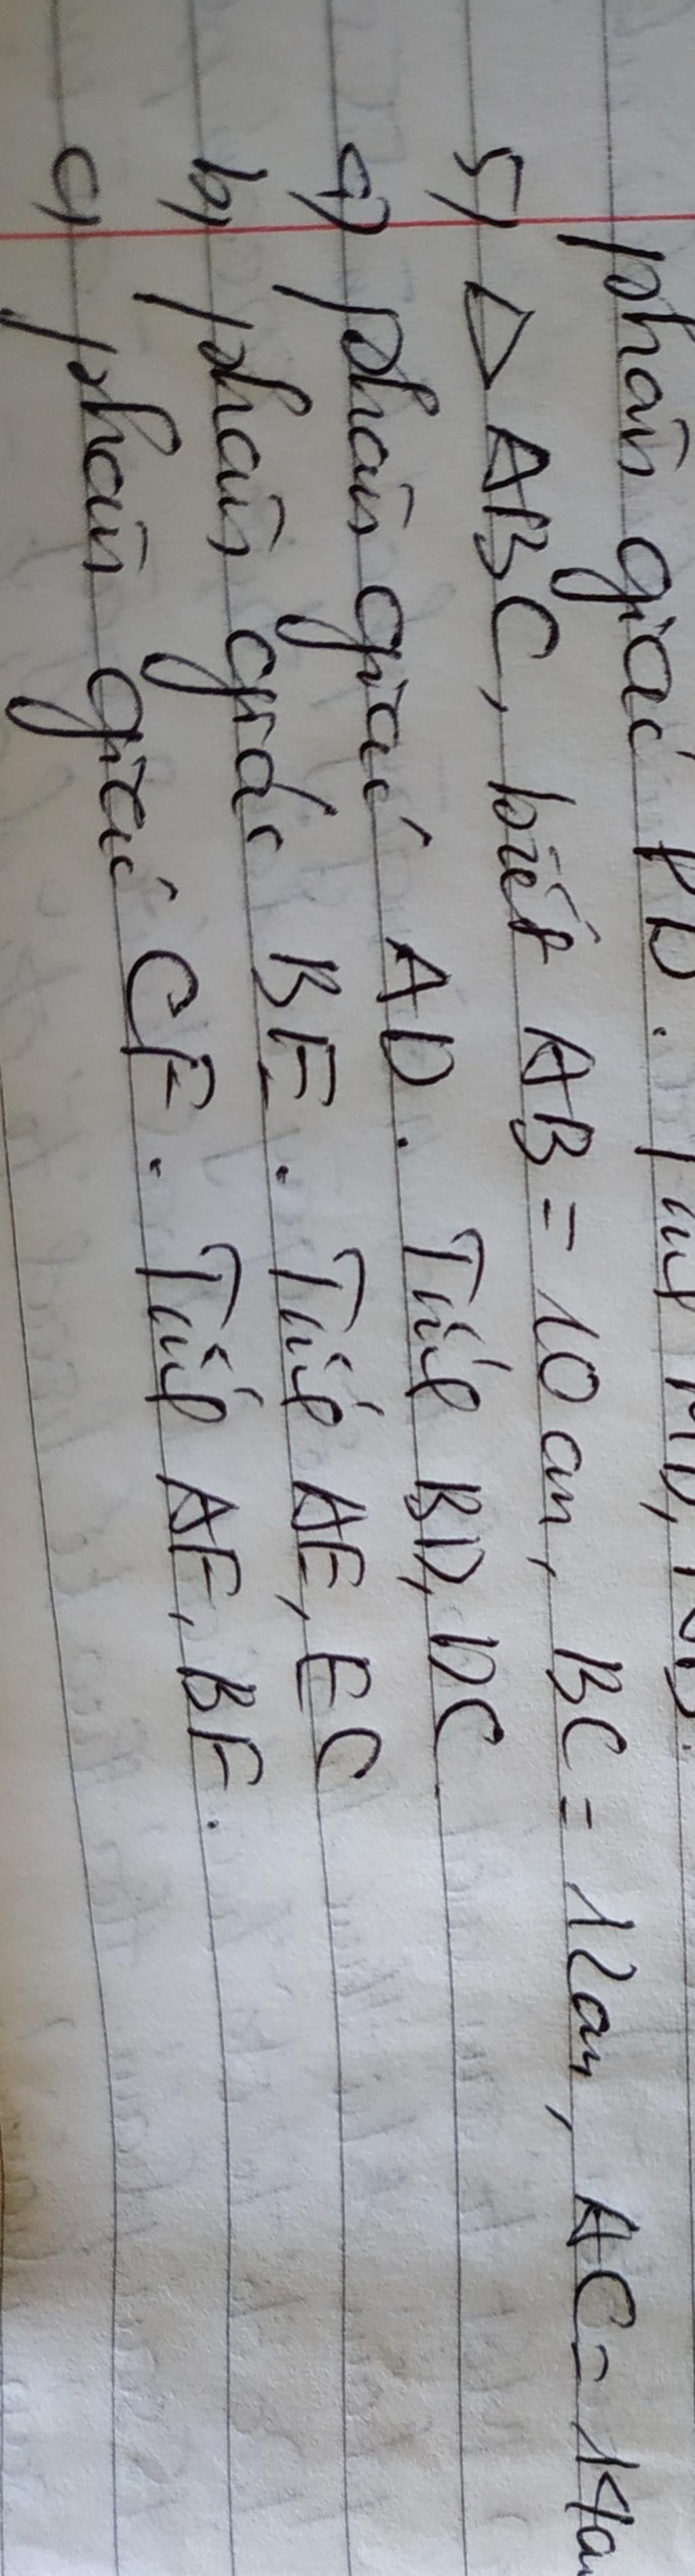 phân giác PD. Tính MD, ND.
5) △ ABC, biết AB = 10 cm, BC = 12cm, AC = 14cm
a) phân giác AD. Tính BD, DC
b) phân giác BE. Tính AE, EC
c) phân giác CF. Tính AF, BF.